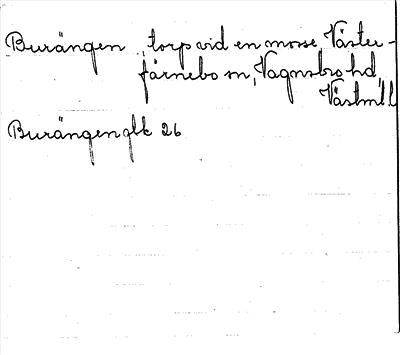 Burängen torp vid en mosse, Väster-
färnebo sn, Vagnsbro hd,
Västml l
Burängen glk 26